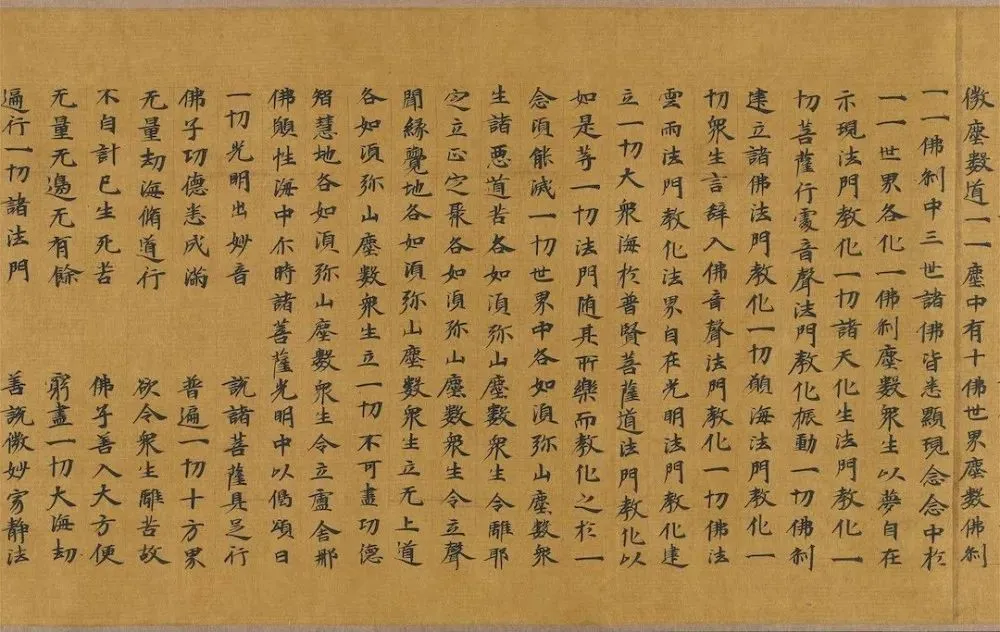 微塵數道一一塵中有十佛世界塵數佛刹
一一佛刹中三世諸佛皆悉顯現念念中於
一一世界各化一佛刹塵數衆生以夢自在
示現法門教化一切諸天化生法門教化一
切菩薩行處音聲法門教化振動一切佛刹
建立諸佛法門教化一切願海法門教化一
切衆生言辝入佛音聲法門教化一切佛法
雲雨法門教化法界自在光明法門教化建
立一切大衆海於普賢菩薩道法門教化以
如是等一切法門随其所樂而教化之於一
念頃能滅一切世界中各如須弥山塵數衆
生諸惡道苦各如須弥山塵數衆生令離耶
定立正定聚各如須弥山塵數衆生令立聲
聞緣覺地各如須弥山塵數衆生立无上道
各如須弥山塵數衆生立一切不可盡功德
智慧地各如須弥山塵數衆生令立盧舍那
佛願性海中尒時諸菩薩光明中以偈頌曰
一切光明出妙音　說諸菩薩具足行
佛子功德悉成滿　普遍一切十方界
无量劫海脩道行　欲令衆生離苦故
不自計已生死苦　佛子善入大方便
无量无邊无有餘　窮盡一切大海劫
遍行一切諸法門　善說微妙寂靜法